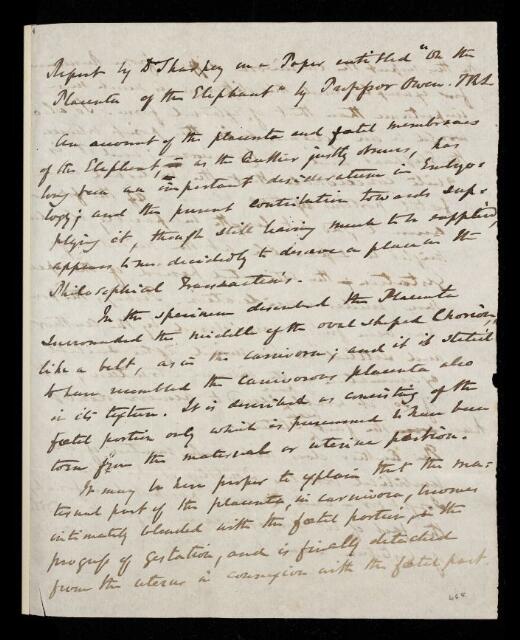 Report by Dr Sharpey on a Paper entitled "On the
Placenta of the Elephant" by Professor Owen. FRS
An account of the placenta and foetal membranes
of the Elephant, as the Author justly observes, has
long been an important desideratum in Embryo-
logy; and the present contribution towards sup-
plying it, though still leaving much to be supplied,
appears to me decidedly to deserve a place in the
Philosophical Transactions.
In the specimen described the Placenta
surrounded the middle of the oval shaped Chorion,
like a belt, as in the carnivora; and it is stated
to have resembled the carnivorous placenta also
in its texture. It is described as consisting of the
foetal portion only which is presumed to have been
torn from the maternal or uterine portion.
It may be here proper to explain that the ma-
ternal part of the placenta, in carnivora, becomes
intimately blended with the foetal portion in the
progress of gestation, and is finally detached
from the uterus in connexion with the foetal part.